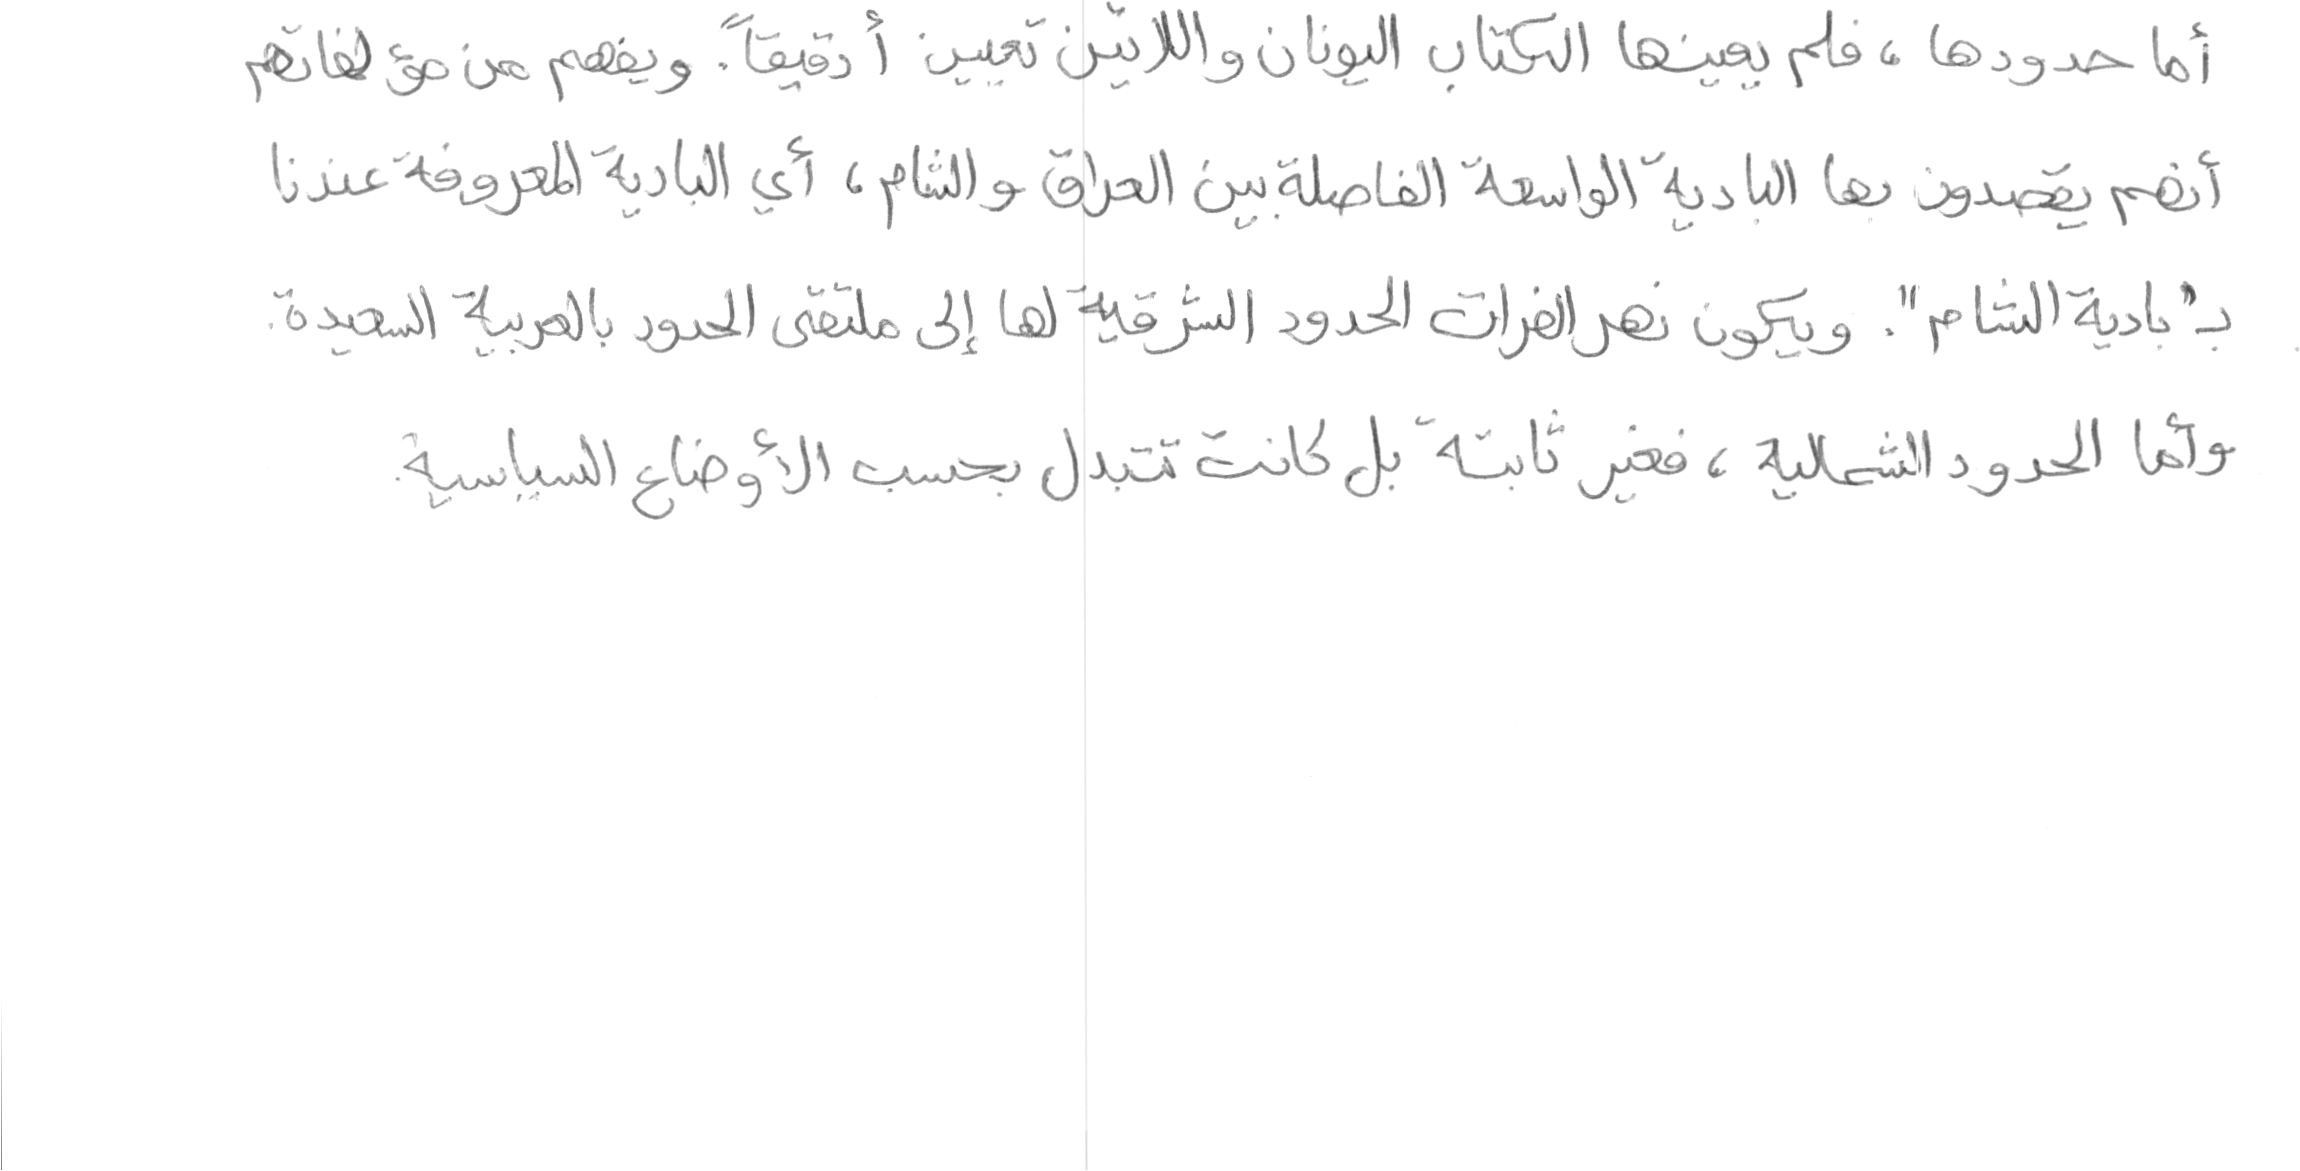 أما حدودها، فلم يعينها الكتاب اليونان واللاتين تعيين أ دقيقاً. ويفهم من مؤ لفاتهم
أنهم يقصدون بها البادية الواسعة الفاصلة بين العراق والشام، أي البادية المعروفة عندنا
بـ"بادية الشام". ويكون نهر الفرات الحدود الشرقية لها إلى ملتقى الحدود بالعربية السعيدة.
وأما الحدود الشمالية، فغير ثابتة بل كانت تتبدل بحسب الأوضاع السياسية.